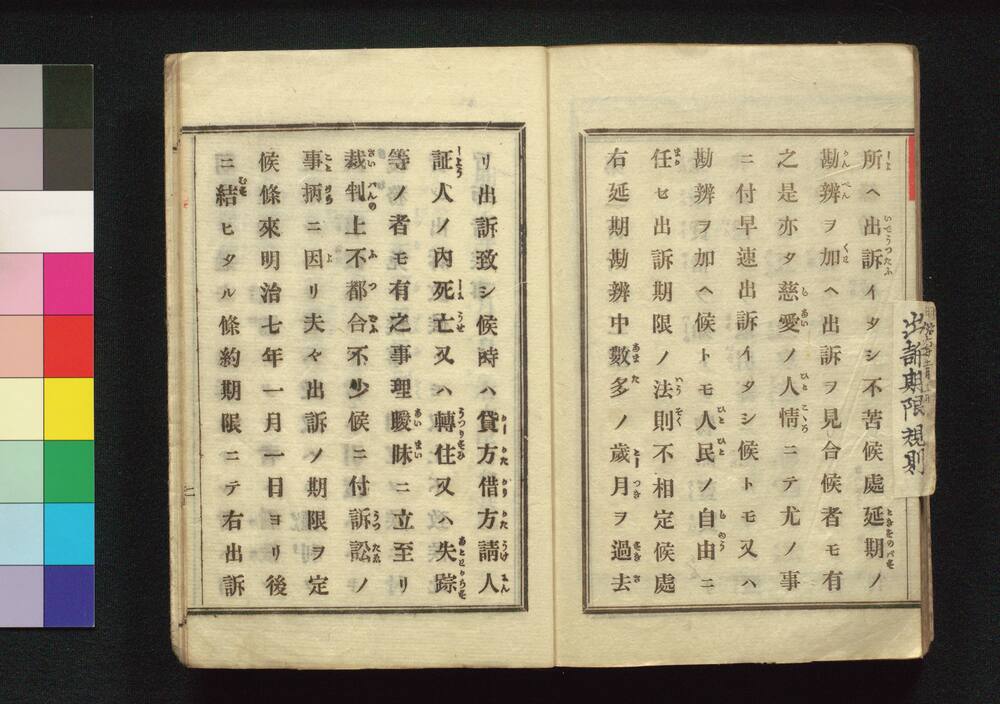 所ヘ出訴イタシ不苦候處延期ノ
勘辨ヲ加ヘ出訴ヲ見合候者モ有
之是亦タ慈愛ノ人情ニテ尤ノ事
ニ付早速出訴イタシ候トモ又ハ
勘辨ヲ加ヘ候トモ人民ノ自由ニ
任セ出訴期限ノ法則不相定候處
右延期勘辨中數多ノ歳月ヲ過去
リ出訴致シ候時ハ貸方借方請人
証人ノ內死亡又ハ轉住又ハ失踪
等ノ者モ有之事理曖昧ニ立至リ
裁判上不都合不少候ニ付訴訟ノ
事柄ニ因リ夫々出訴ノ期限ヲ定
候條來明治七年一月一日ヨリ後
ニ結ヒタル條約期限ニテ右出訴
二
出訴期限規則